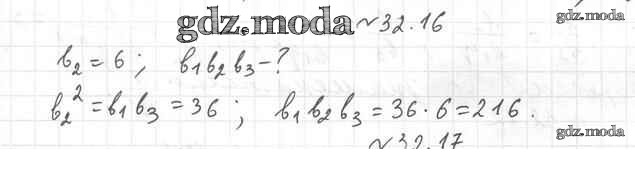 gdz.moda №32.16 gdz.moda
b₂ = 6; b₁b₂b₃ - ?
b₂² = b₁b₃ = 36; b₁b₂b₃ = 36 · 6 = 216.
gdz.moda
№32.17